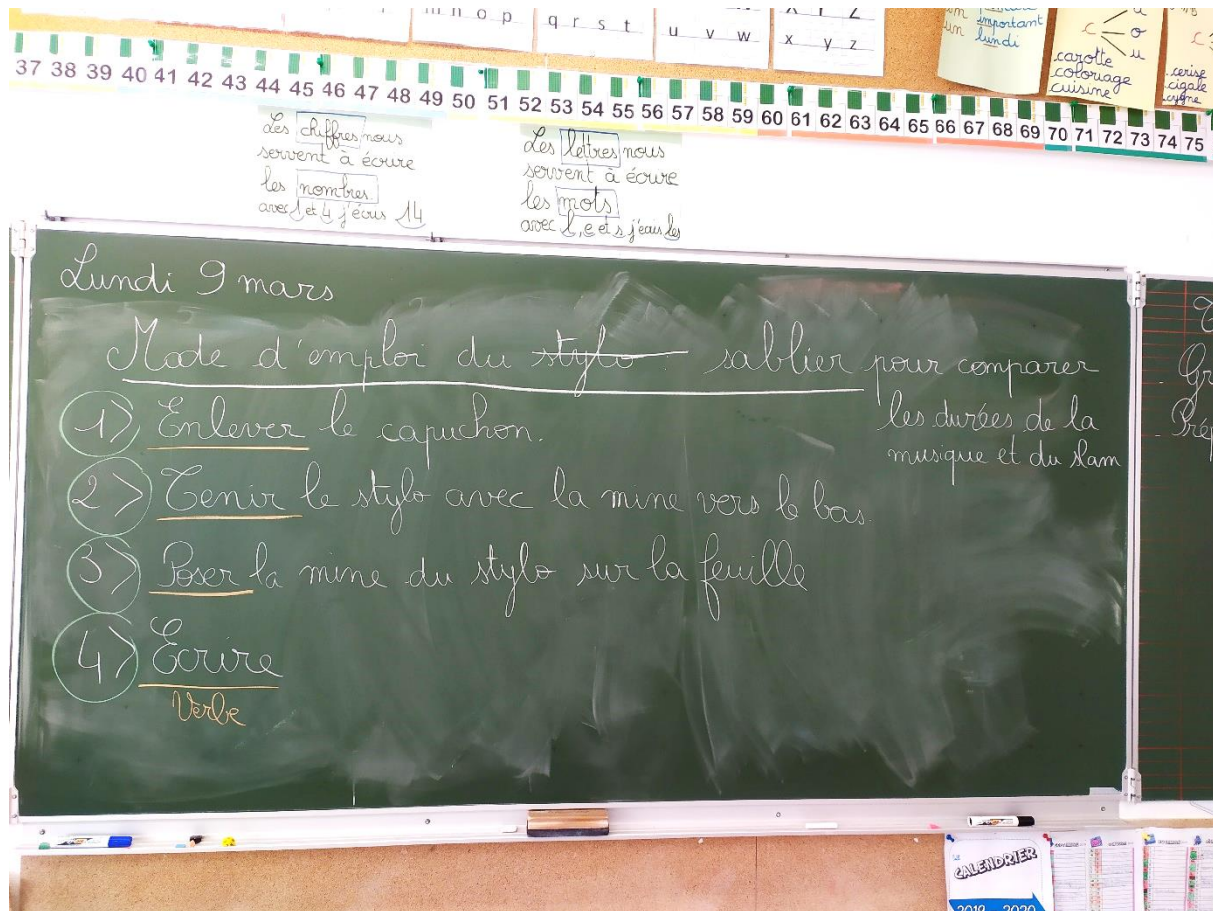 m n o p
q r s t
u v w
x y z
un important
un lundi
c
o
u
carotte
coloriage
cuisine
cerise
cigale
cygne
37 38 39 40 41 42 43 44 45 46 47 48 49 50 51 52 53 54 55 56 57 58 59 60 61 62 63 64 65 66 67 68 69 70 71 72 73 74 75
Les chiffres nous
servent à écrire
les nombres.
avec 1 et 4 j'écris 14
Les lettres nous
servent à écrire
les mots
avec l, e et s j'écris les
Lundi 9 mars
Mode d'emploi du stylo sablier pour comparer
les durées de la
musique et du slam
1) Enlever le capuchon.
2) Tenir le stylo avec la mine vers le bas.
3) Poser la mine du stylo sur la feuille
4) Écrire
Verbe
Gr
Prép
CALENDRIER
2019 2020